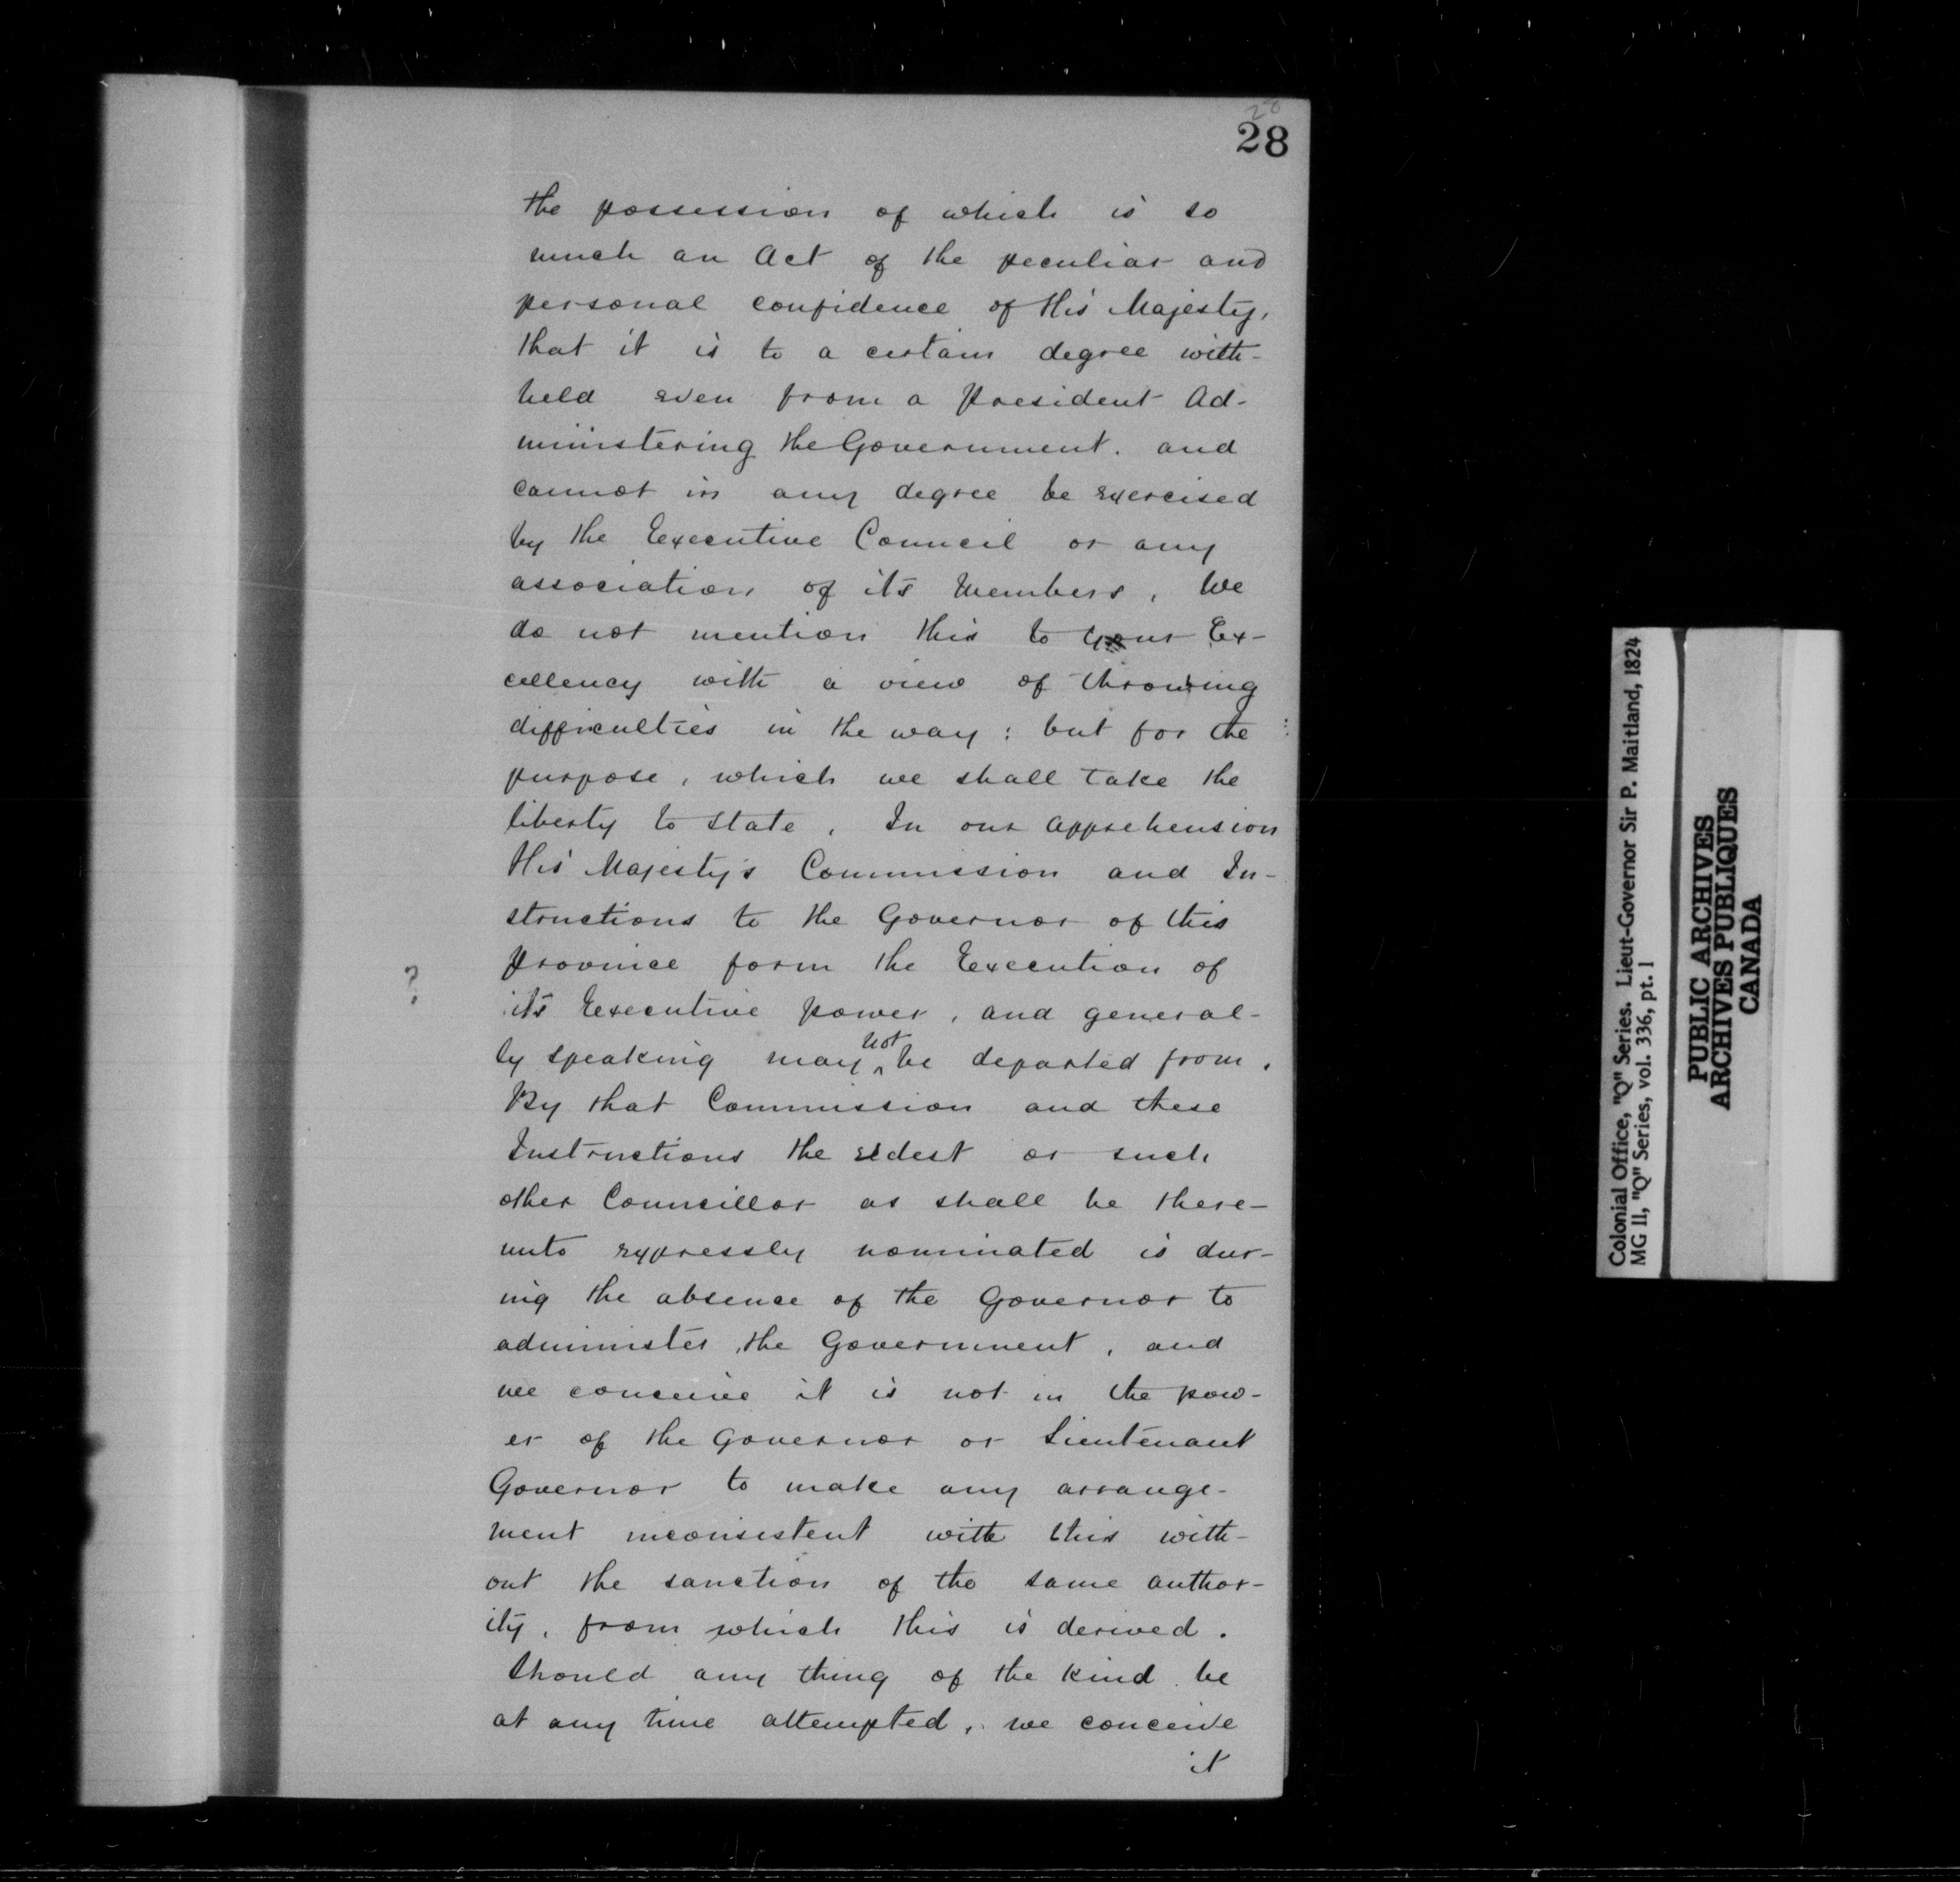 28
28
the possession of which is so
much an Act of the peculiar and
personal confidence of His Majesty,
that it is to a certain degree with-
held even from a President Ad-
ministering the Government. and
cannot in any degree be exercised
by the Executive Council or any
association of its Members, We
do not mention this to your Ex-
cellency with a view of throwing
difficulties in the way: but for the
purpose, which we shall take the
liberty to state, In our apprehension
His Majesty's Commission and In-
structions to the Governor of this
?
Province form the Execution of
its Executive power, and general-
ly speaking may not be departed from.
By that Commission and these
Instructions the eldest or such
other Councillor as shall be there-
unto expressly nominated is dur-
ing the absence of the Governor to
administer the Government, and
we conceive it is not in the pow-
er of the Governor or Lieutenant
Governor to make any arrange-
ment inconsistent with this with-
out the sanction of the same author-
ity, from which this is derived.
Should any thing of the kind be
at any time attempted, we conceive
it
Colonial Office, "Q" Series. Lieut-Governor Sir P. Maitland, 1824
MG 11, "Q" Series, vol. 336, pt. 1
PUBLIC ARCHIVES
ARCHIVES PUBLIQUES
CANADA